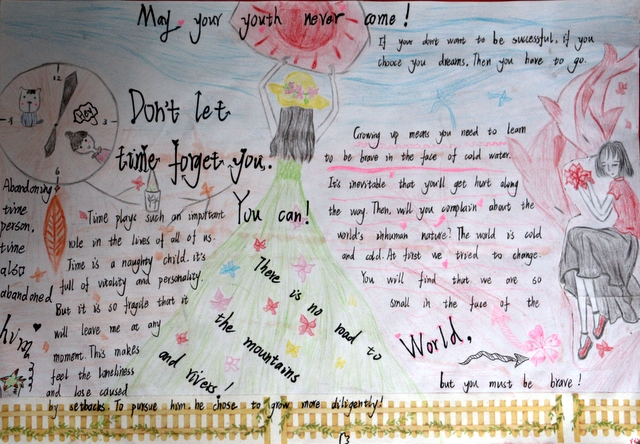 May your youth never come!
If your don't want to be successful, if you
choose you dreams. Then you have to go.
12
3
6
Don't let
time forget you.
You can!
Abandoning
time
person,
time
also
abandoned
him
Time plays such an important
role in the lives of all of us.
Time is a naughty child. it's
full of vitality and personality
But it is so fragile that it
will leave me at any
moment. This makes
feel the loneliness
and lose caused
by setbacks. To pursue him. he chose to grow more diligently!
There is no road to
the mountains
and rivers!
Growing up means you need to learn
to be brave in the face of cold water.
It's inevitable that you'll get hurt along
the way. Then, will you complain about the
world's inhuman nature? The world is cold
and cold. At first we tried to change.
You will find that we are so
small in the face of the
World,
but you must be brave!